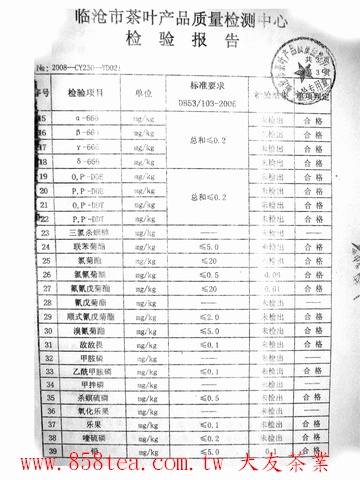 临沧市茶叶产品质量检测中心
检验报告
No: 2008--CY230--YD021
序号 检验项目 单位 标准要求 DB53/103-2006 单项判定
15 α-666 mg/kg 总和≤0.2 未检出 合格
16 β-666 mg/kg 未检出 合格
17 γ-666 mg/kg 未检出 合格
18 δ-666 mg/kg 未检出 合格
19 O,P-DDE mg/kg 总和≤0.2 未检出 合格
20 P,P-DDE mg/kg 未检出 合格
21 O,P-DDT mg/kg 未检出 合格
22 P,P-DDT mg/kg 未检出 合格
23 三氯杀螨醇 mg/kg —— 未检出 ——
24 联苯菊酯 mg/kg ≤5.0 未检出 合格
25 氯菊酯 mg/kg ≤20 未检出 合格
26 氯氰菊酯 mg/kg ≤0.5 合格
27 氟氰戊菊酯 mg/kg ≤20 0.01 合格
28 氰戊菊酯 mg/kg —— 未检出 ——
29 顺式氰戊菊酯 mg/kg ≤2.0 未检出 合格
30 溴氰菊酯 mg/kg ≤5.0 未检出 合格
31 敌敌畏 mg/kg ≤0.1 未检出 合格
32 甲胺磷 mg/kg —— 未检出 ——
33 乙酰甲胺磷 mg/kg ≤0.1 未检出 合格
34 甲拌磷 mg/kg —— 未检出 ——
35 杀螟硫磷 mg/kg ≤0.5 未检出 合格
36 氧化乐果 mg/kg —— 未检出 ——
37 乐果 mg/kg ≤0.1 未检出 合格
38 喹硫磷 mg/kg ≤0.2 未检出 合格
39 铅 mg/kg ≤5.0 0.1 合格
www.858tea.com.tw 大友茶業